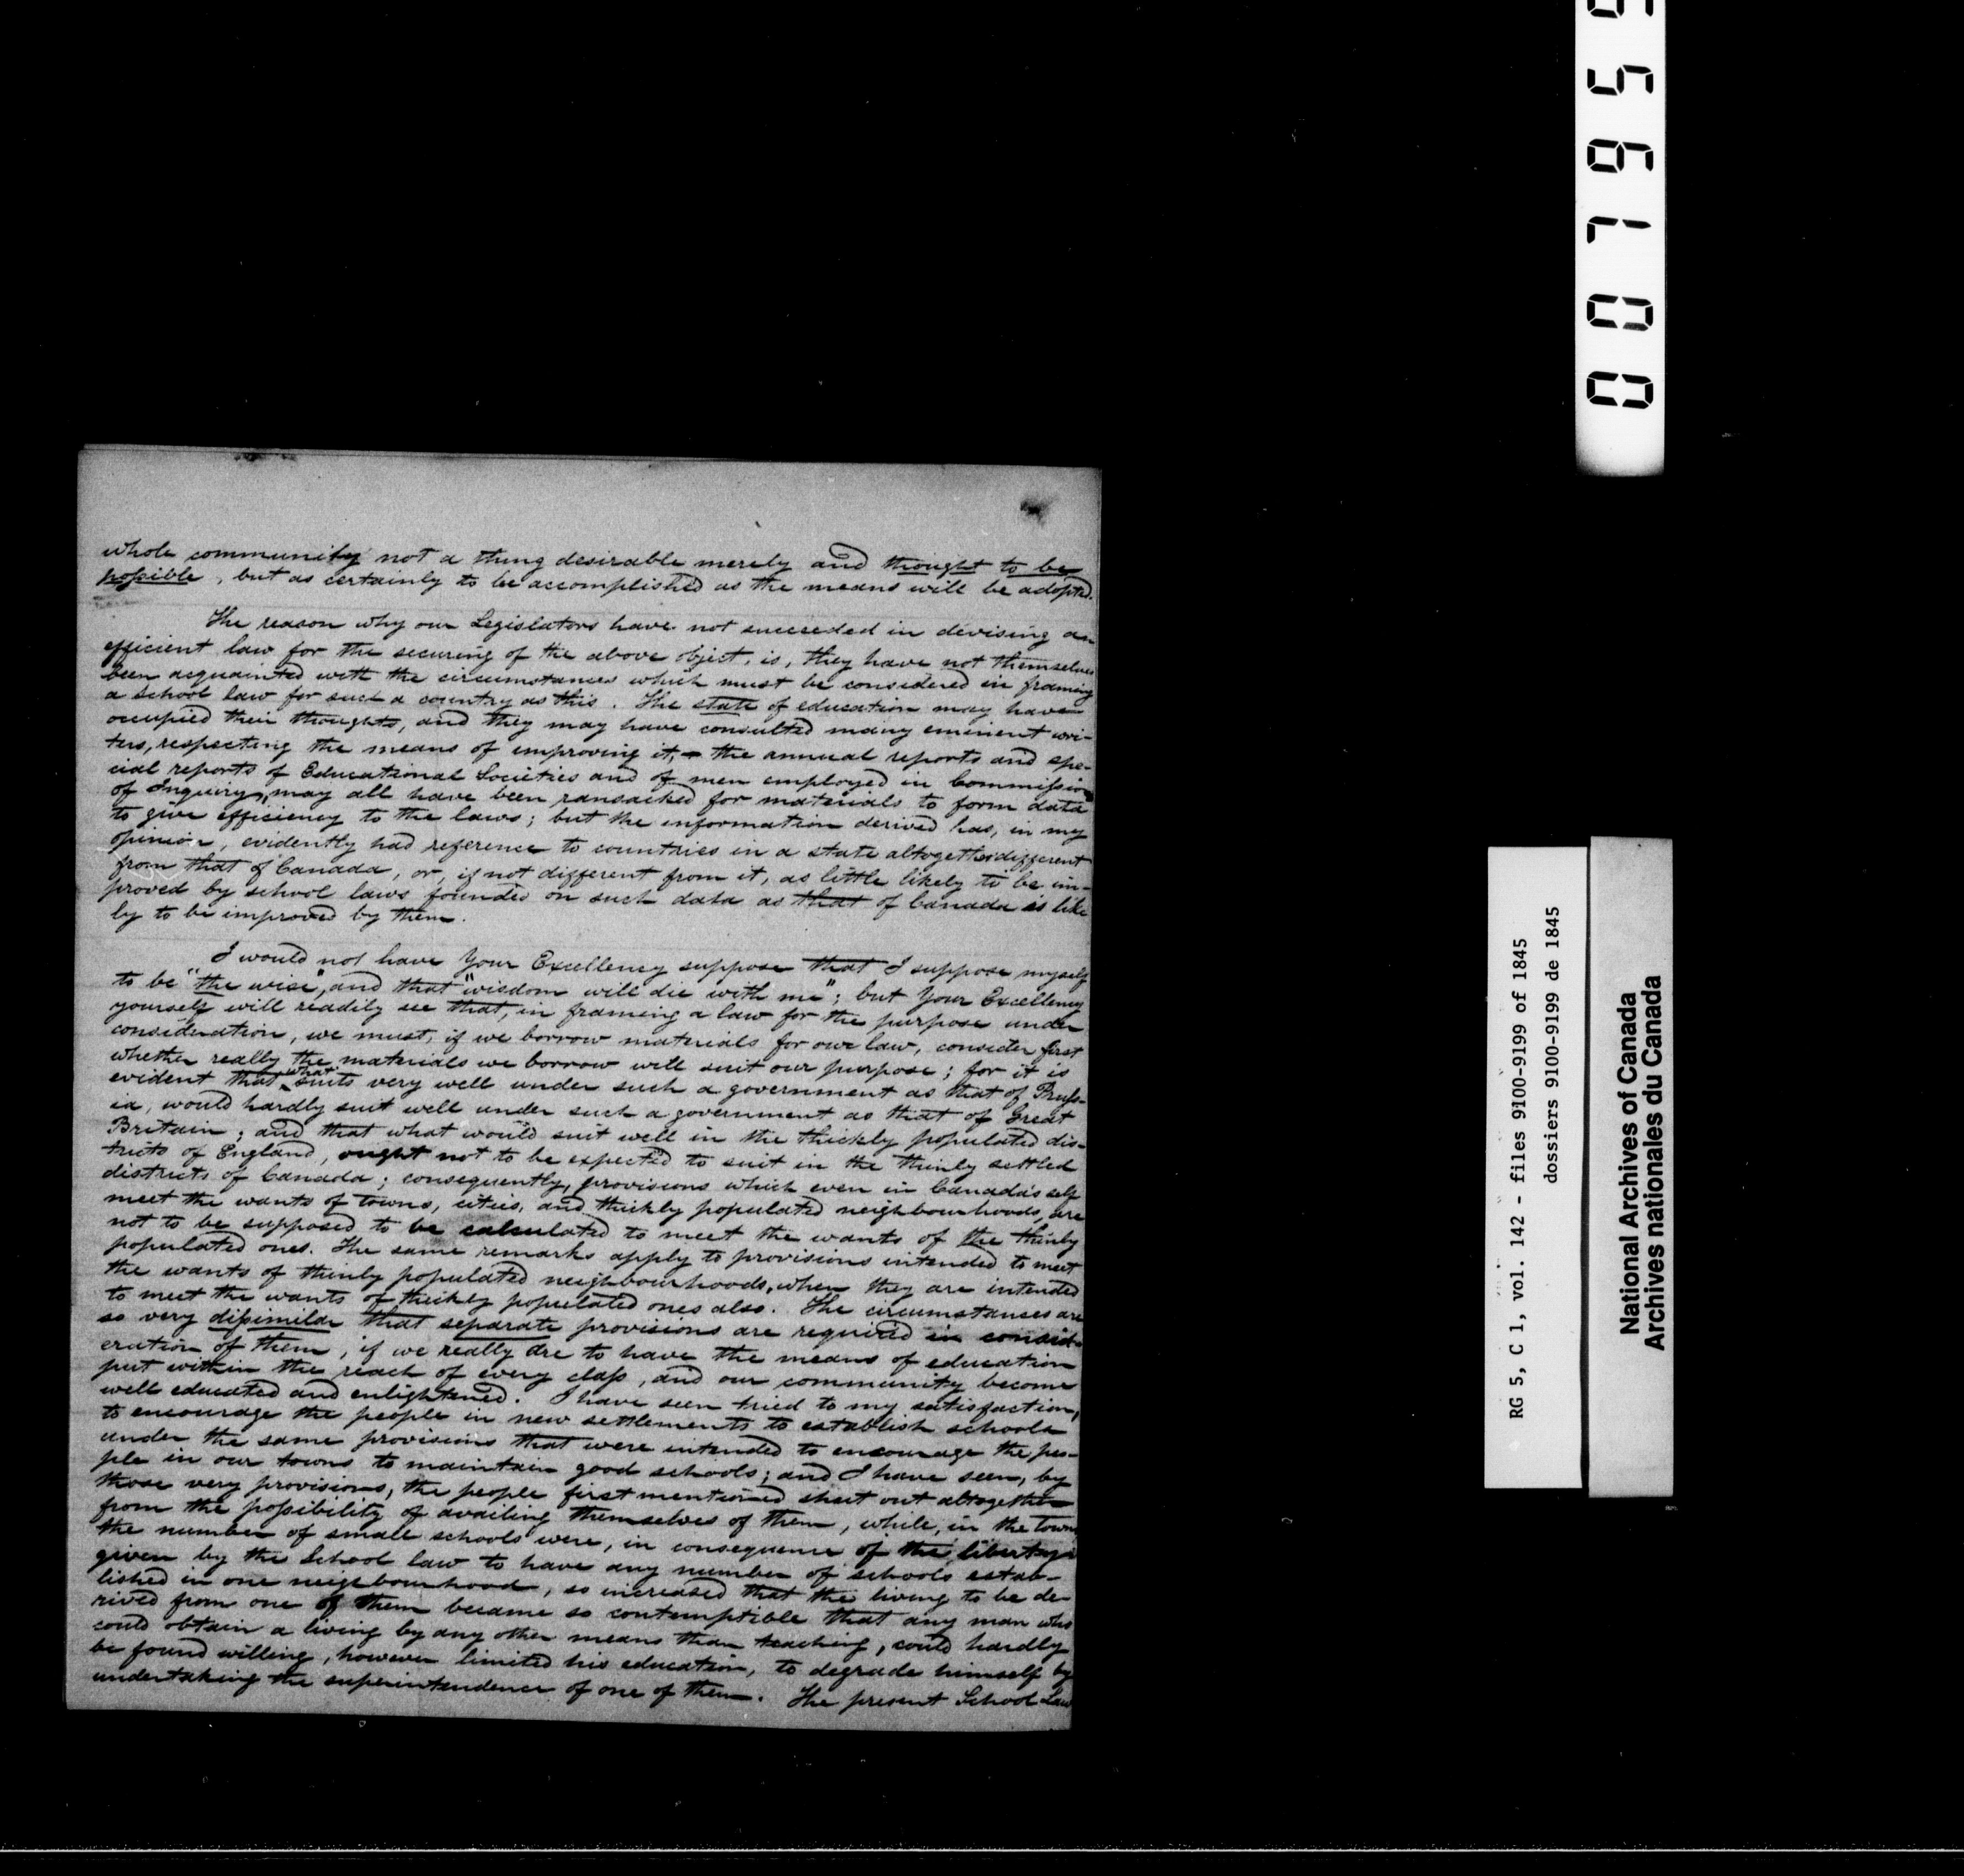 whole community not a thing desirable merely and thought to be
possible, but as certainly to be accomplished as the means will be adopted.
The reason why our Legislators have not succeeded in devising an
efficient law for the securing of the above object, is, they have not themselves
been acquainted with the circumstances which must be considered in framing
a school law for such a country as this. The state of education may have
occupied their thoughts, and they may have consulted many eminent wri-
ters, respecting the means of improving it, – the annual reports and spe-
cial reports of Educational Societies and of men employed in Commission
of Inquiry, may all have been ransacked for materials to form data
to give efficiency to the laws; but the information derived has, in my
opinion, evidently had reference to countries in a state altogether different
from that of Canada, or, if not different from it, as little likely to be im-
proved by school laws founded on such data as that of Canada is like
ly to be improved by them.
I would not have Your Excellency suppose that I suppose myself
to be "the wise", and that "wisdom will die with me"; but Your Excellency
yourself will readily see that, in framing a law for the purpose under
consideration, we must, if we borrow materials for our law, consider first
whether really the materials we borrow will suit our purpose; for it is
evident that what suits very well under such a government as that of Pruss-
ia, would hardly suit well under such a government as that of Great
Britain; and that what would suit well in the thickly populated dis-
tricts of England, ought not to be expected to suit in the thinly settled
districts of Canada; consequently, provisions which even in Canada's self
meet the wants of towns, cities, and thickly populated neighbourhoods, are
not to be supposed to be calculated to meet the wants of the thinly
populated ones. The same remarks apply to provisions intended to meet
the wants of thinly populated neighbourhoods, when they are intended
to meet the wants of thickly populated ones also. The circumstances are
so very dissimilar that separate provisions are required in consid-
eration of them, if we really are to have the means of education
put within the reach of every class, and our community become
well educated and enlightened. I have seen tried to my satisfaction,
to encourage the people in new settlements to establish schools
under the same provisions that were intended to encourage the peo-
ple in our towns to maintain good schools; and I have seen, by
those very provisions, the people first mentioned shut out altogether
from the possibility of availing themselves of them, while, in the towns
the number of small schools were, in consequence of the liberty
given by the School law to have any number of schools estab-
lished in one neighbourhood, so increased that the living to be de-
rived from one of them became so contemptible that any man who
could obtain a living by any other means than teaching, could hardly
be found willing, however limited his education, to degrade himself by
undertaking the superintendence of one of them. The present School Law
RG 5, C 1, vol. 142 - files 9100-9199 of 1845
dossiers 9100-9199 de 1845
National Archives of Canada
Archives nationales du Canada